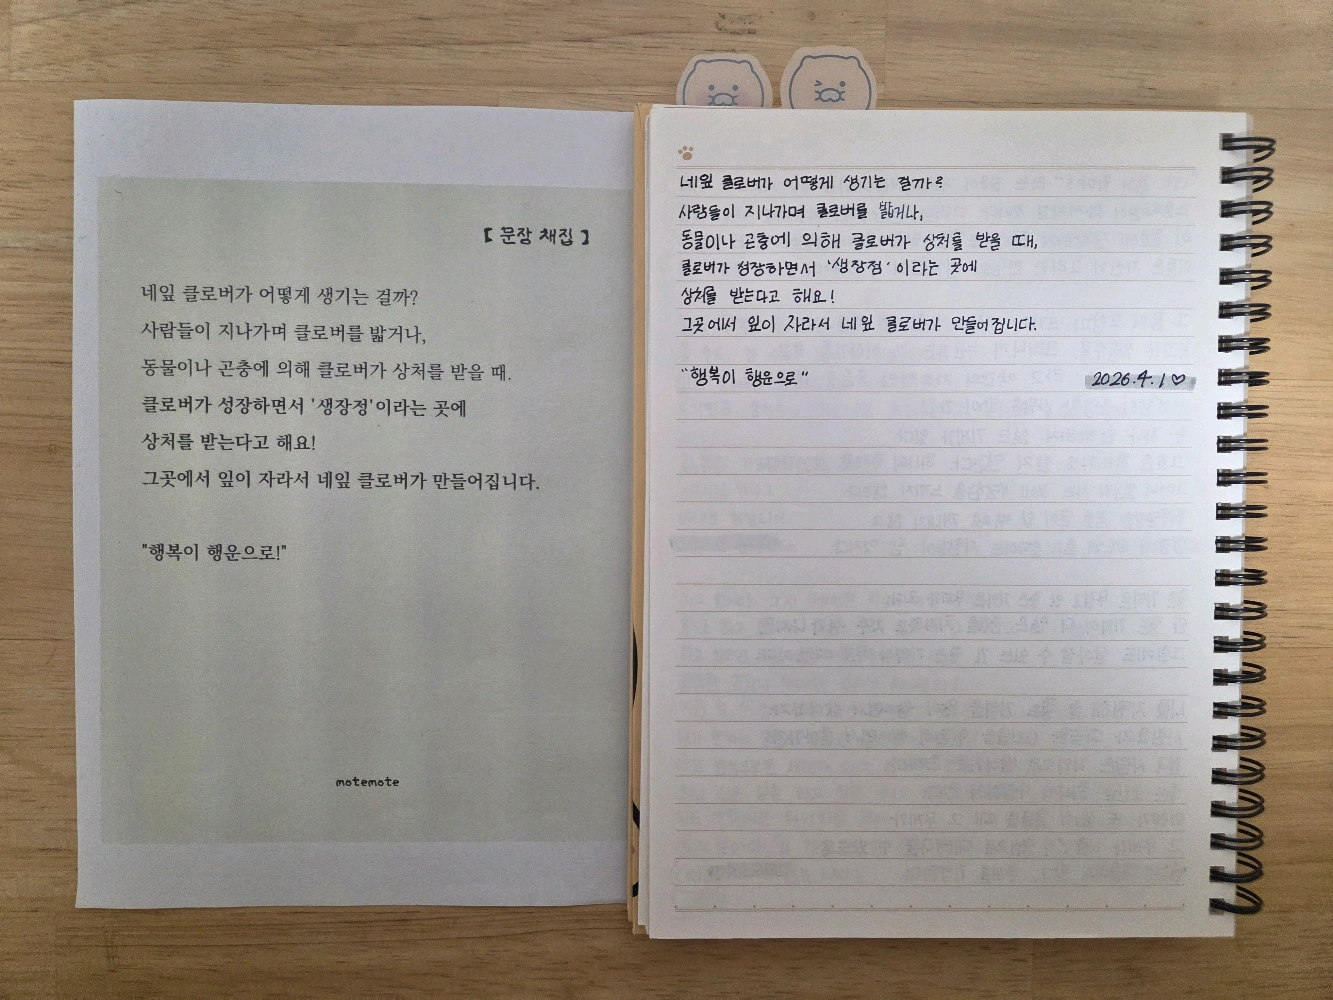 【 문장 채집 】
네잎 클로버가 어떻게 생기는 걸까?
사람들이 지나가며 클로버를 밟거나,
동물이나 곤충에 의해 클로버가 상처를 받을 때.
클로버가 성장하면서 '생장정'이라는 곳에
상처를 받는다고 해요!
그곳에서 잎이 자라서 네잎 클로버가 만들어집니다.
"행복이 행운으로!"
motemote
네잎 클로버가 어떻게 생기는 걸까?
사람들이 지나가며 클로버를 밟거나,
동물이나 곤충에 의해 클로버가 상처를 받을 때,
클로버가 성장하면서 '생장점' 이라는 곳에
상처를 받는다고 해요!
그곳에서 잎이 자라서 네잎 클로버가 만들어집니다.
"행복이 행운으로"
2026.4.1♡